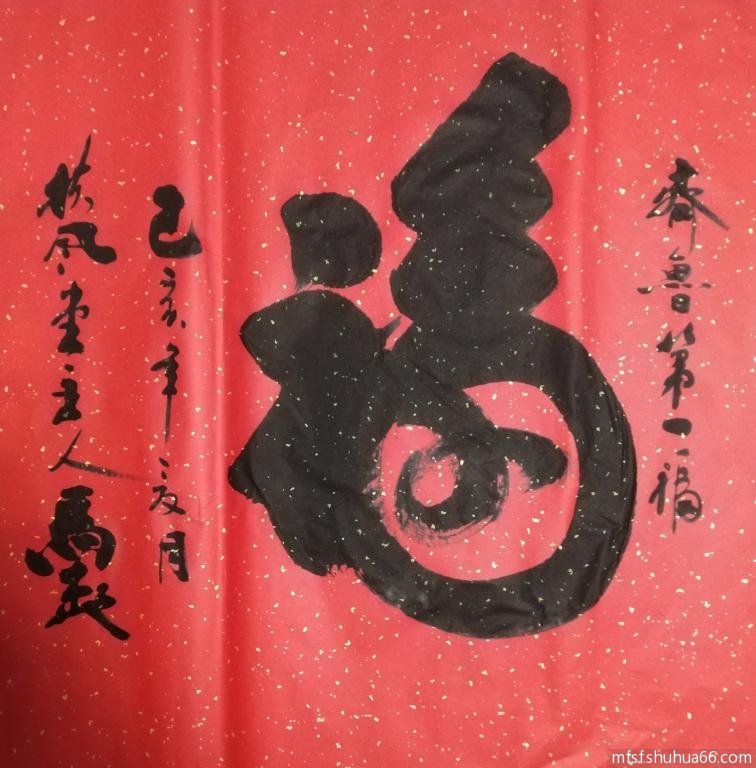 齊魯第一福
福
己亥年亥月
扶风堂主人馬起
mfsf.shuhua66.com